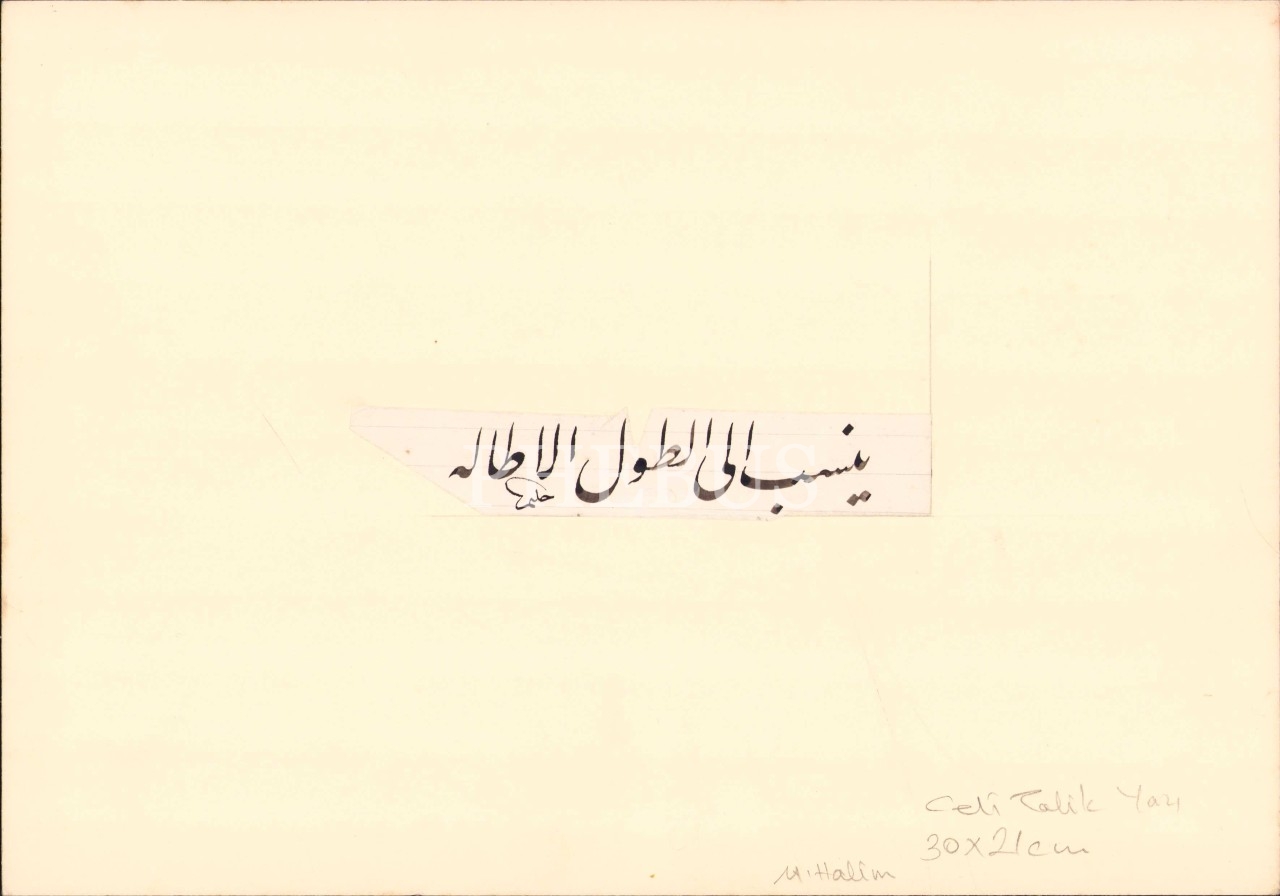 ينسب الى الطول الاطاله
حليم
PHEBUS
Celi Talik Yazı
30x21cm
M. Halim